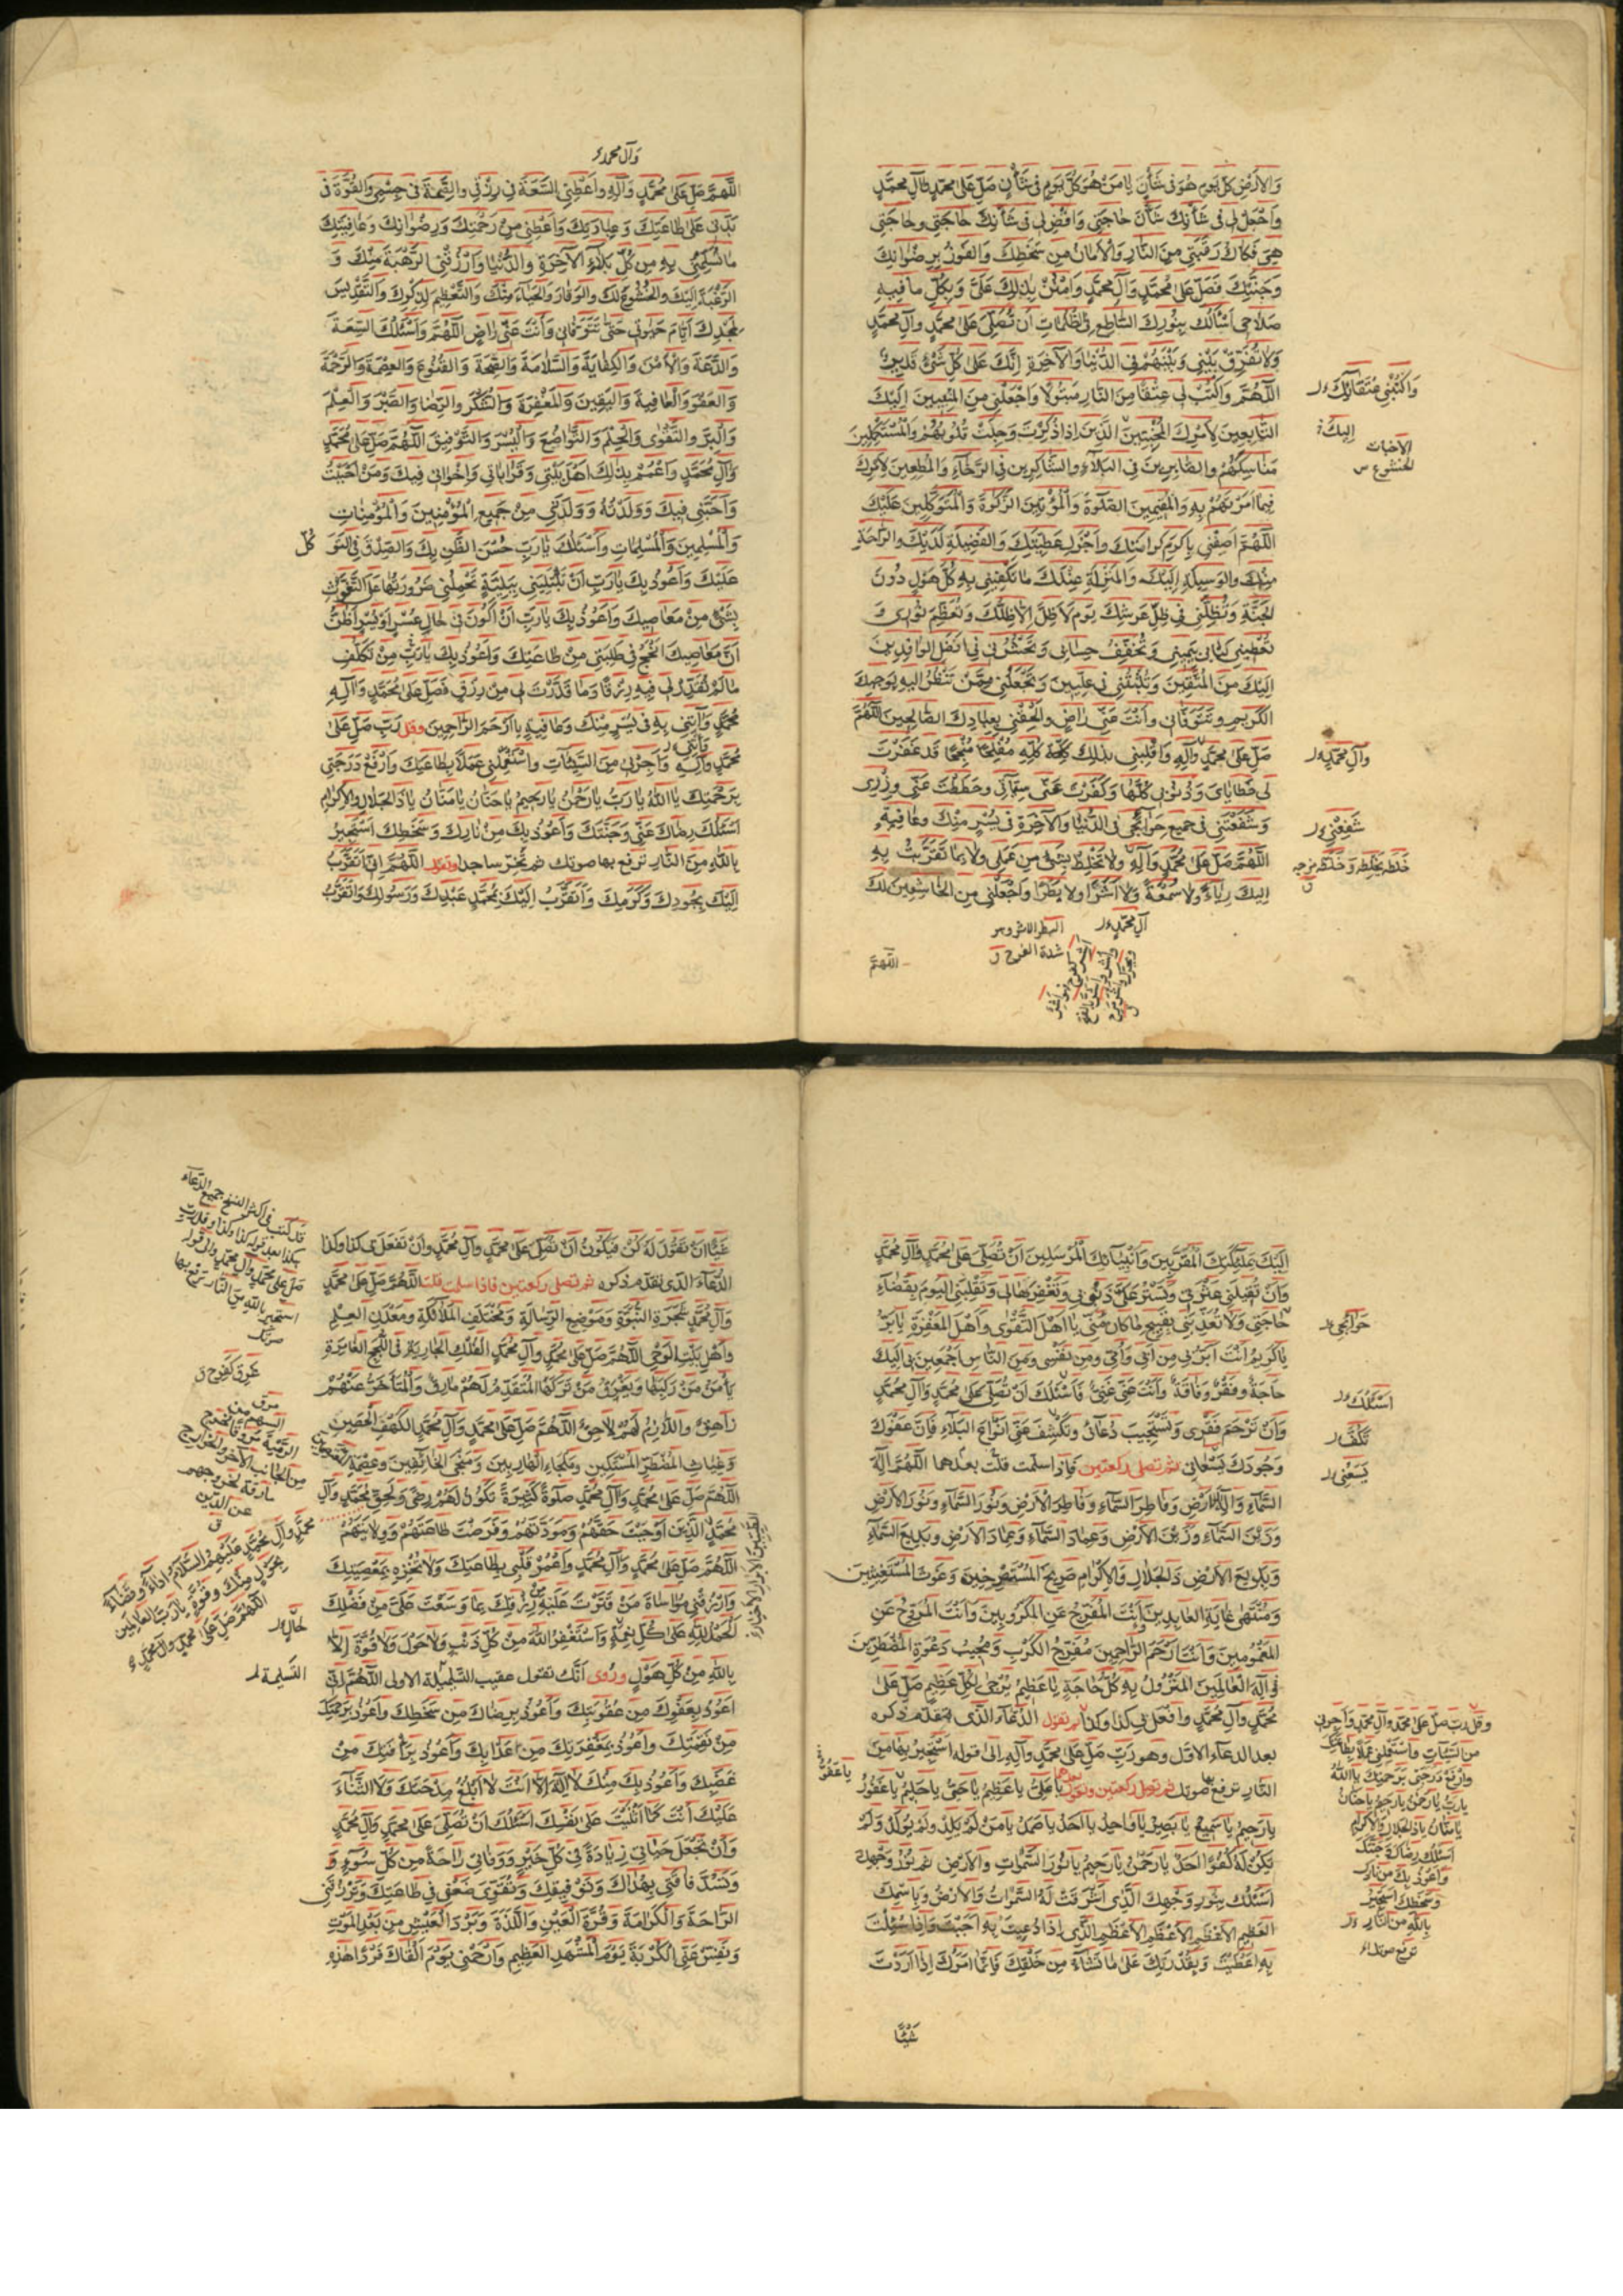 وَالْاَرْضِ كُلَّ يَوْمٍ هُوَ فِى شَأْنٍ يَا مَنْ هُوَ كُلَّ يَوْمٍ فِى شَأْنٍ صَلِّ عَلىٰ مُحَمَّدٍ وَآلِ مُحَمَّدٍ
وَاجْعَلْ لِى فِى شَأْنِكَ شَأْنَ حَاجَتِى وَاقْضِ لِى فِى شَأْنِكَ حَاجَتِى وَحَاجَتِى
هِىَ فَكَاكُ رَقَبَتِى مِنَ النَّارِ وَالْاَمَانُ مِنْ سَخَطِكَ وَالْفَوْزُ بِرِضْوَانِكَ
وَجَنَّتِكَ فَصَلِّ عَلىٰ مُحَمَّدٍ وَآلِ مُحَمَّدٍ وَامْنُنْ بِذٰلِكَ عَلَىَّ وَبِكُلِّ مَا فِيهِ
صَلَاحِى اَسْأَلُكَ بِنُورِكَ السَّاطِعِ فِى الظُّلُمَاتِ اَنْ تُصَلِّىَ عَلىٰ مُحَمَّدٍ وَآلِ مُحَمَّدٍ
وَلَا تُفَرِّقْ بَيْنِى وَبَيْنَهُمْ فِى الدُّنْيَا وَالْآخِرَةِ اِنَّكَ عَلىٰ كُلِّ شَىْءٍ قَدِيرٌ
اَللّٰهُمَّ وَاكْتُبْ لِى عِتْقًا مِنَ النَّارِ مَبْتُولًا وَاجْعَلْنِى مِنَ الْمُنِيبِينَ اِلَيْكَ
التَّابِعِينَ لِاَمْرِكَ الْمُخْبِتِينَ الَّذِينَ اِذَا ذُكِرْتَ وَجِلَتْ قُلُوبُهُمْ وَالْمُسْتَكْمِلِينَ
مَنَاسِكَهُمْ وَالصَّابِرِينَ فِى الْبَلَاءِ وَالشَّاكِرِينَ فِى الرَّخَاءِ وَالْمُطِيعِينَ لِاَمْرِكَ
فِيمَا اَمَرْتَهُمْ بِهِ وَالْمُقِيمِينَ الصَّلٰوةَ وَالْمُؤْتِينَ الزَّكٰوةَ وَالْمُتَوَكِّلِينَ عَلَيْكَ
اَللّٰهُمَّ اَضِفْنِى بِاَكْرَمِ كَرَامَتِكَ وَاَجْزَلِ عَطِيَّتِكَ وَالْفَضِيلَةِ لَدَيْكَ وَالرَّاحَةِ
مِنْكَ وَالْوَسِيلَةِ اِلَيْكَ وَالْمَنْزِلَةِ عِنْدَكَ مَا تَكْفِينِى بِهِ كُلَّ هَوْلٍ دُونَ
الْجَنَّةِ وَتُظِلُّنِى فِى ظِلِّ عَرْشِكَ يَوْمَ لَا ظِلَّ اِلَّا ظِلُّكَ وَتُعَظِّمُ نُورِى وَ
تُعْطِينِى كِتَابِى بِيَمِينِى وَتُخَفِّفُ حِسَابِى وَتَحْشُرُنِى فِى اَفْضَلِ الْوَافِدِينَ
اِلَيْكَ مِنَ الْمُتَّقِينَ وَتُثْبِتُنِى فِى عِلِّيِّينَ وَتَجْعَلُنِى مِمَّنْ تَنْظُرُ اِلَيْهِ بِوَجْهِكَ
الْكَرِيمِ وَتَتَوَفَّانِى وَاَنْتَ عَنِّى رَاضٍ وَاَلْحِقْنِى بِعِبَادِكَ الصَّالِحِينَ اَللّٰهُمَّ
صَلِّ عَلىٰ مُحَمَّدٍ وَآلِهِ وَاقْلِبْنِى بِذٰلِكَ كُلِّهِ مُفْلِحًا مُنْجِحًا قَدْ غَفَرْتَ
لِى خَطَايَاىَ وَذُنُوبِى كُلَّهَا وَكَفَّرْتَ عَنِّى سَيِّئَاتِى وَحَطَطْتَ عَنِّى وِزْرِى
وَشَفَّعْتَنِى فِى جَمِيعِ حَوَائِجِى فِى الدُّنْيَا وَالْآخِرَةِ فِى يُسْرٍ مِنْكَ وَعَافِيَةٍ
اَللّٰهُمَّ صَلِّ عَلىٰ مُحَمَّدٍ وَآلِهِ وَلَا تَخْلِطْ بِشَىْءٍ مِنْ عَمَلِى وَلَا بِمَا تَقَرَّبْتُ بِهِ
اِلَيْكَ رِيَاءً وَلَا سُمْعَةً وَلَا اَشَرًا وَلَا بَطَرًا وَاجْعَلْنِى مِنَ الْخَاشِعِينَ لَكَ
اَللّٰهُمَّ
اِلَيْكَ
الاخبات
الخشوع س
وَآلِ مُحَمَّدٍ
شدة الفرح ق
وَآلِ مُحَمَّدٍ
اَللّٰهُمَّ صَلِّ عَلىٰ مُحَمَّدٍ وَآلِهِ وَاَعْطِنِى السَّعَةَ فِى رِزْقِى وَالصِّحَّةَ فِى جِسْمِى وَالْقُوَّةَ فِى
بَدَنِى عَلىٰ طَاعَتِكَ وَعِبَادَتِكَ وَاَعْطِنِى مِنْ رَحْمَتِكَ وَرِضْوَانِكَ وَعَافِيَتِكَ
مَا تُسَلِّمُنِى بِهِ مِنْ كُلِّ بَلَاءِ الْآخِرَةِ وَالدُّنْيَا وَارْزُقْنِى الرَّهْبَةَ مِنْكَ وَ
الرَّغْبَةَ اِلَيْكَ وَالْخُشُوعَ لَكَ وَالْوَقَارَ وَالْحَيَاءَ مِنْكَ وَالتَّعْظِيمَ لِذِكْرِكَ وَالتَّقْدِيسَ
لِمَجْدِكَ اَيَّامَ حَيٰوتِى حَتّٰى تَتَوَفَّانِى وَاَنْتَ عَنِّى رَاضٍ اَللّٰهُمَّ وَاَسْئَلُكَ السَّعَةَ
وَالدَّعَةَ وَالْاَمْنَ وَالْكِفَايَةَ وَالسَّلَامَةَ وَالصِّحَّةَ وَالْقُنُوعَ وَالْعِصْمَةَ وَالرَّحْمَةَ
وَالْعَفْوَ وَالْعَافِيَةَ وَالْيَقِينَ وَالْمَغْفِرَةَ وَالشُّكْرَ وَالرِّضَا وَالصَّبْرَ وَالْعِلْمَ
وَالْبِرَّ وَالتَّقْوٰى وَالْحِلْمَ وَالتَّوَاضُعَ وَالْيُسْرَ وَالتَّوْفِيقَ اَللّٰهُمَّ صَلِّ عَلىٰ مُحَمَّدٍ
وَآلِ مُحَمَّدٍ وَاعْمُمْ بِذٰلِكَ اَهْلَ بَيْتِى وَقَرَابَاتِى وَاِخْوَانِى فِيكَ وَمَنْ اَحْبَبْتُ
وَاَحَبَّنِى فِيكَ وَوَلَدْتُهُ وَوَلَدَنِى مِنْ جَمِيعِ الْمُؤْمِنِينَ وَالْمُؤْمِنَاتِ
وَالْمُسْلِمِينَ وَالْمُسْلِمَاتِ وَاَسْئَلُكَ يَا رَبِّ حُسْنَ الظَّنِّ بِكَ وَالصِّدْقَ فِى التَّوَكُّلِ
عَلَيْكَ وَاَعُوذُ بِكَ يَا رَبِّ اَنْ تَبْتَلِيَنِى بِبَلِيَّةٍ تَحْمِلُنِى ضَرُورَتُهَا عَلَى التَّغَوُّثِ
بِشَىْءٍ مِنْ مَعَاصِيكَ وَاَعُوذُ بِكَ يَا رَبِّ اَنْ اَكُونَ فِى حَالِ عُسْرٍ اَوْ يُسْرٍ اَظُنُّ
اَنَّ مَعَاصِيكَ اَنْجَحُ فِى طَلِبَتِى مِنْ طَاعَتِكَ وَاَعُوذُ بِكَ يَا رَبِّ مِنْ تَكَلُّفِ
مَا لَمْ تُقَدِّرْ لِى فِيهِ رِزْقًا وَمَا قَدَّرْتَ لِى مِنْ رِزْقٍ فَصَلِّ عَلىٰ مُحَمَّدٍ وَآلِ
مُحَمَّدٍ وَآتِنِى بِهِ فِى يُسْرٍ مِنْكَ وَعَافِيَةٍ يَا اَرْحَمَ الرَّاحِمِينَ وقل رَبِّ صَلِّ عَلىٰ
مُحَمَّدٍ وَآلِهِ وَاَجِرْنِى مِنَ السَّيِّئَاتِ وَاسْتَعْمِلْنِى عَمَلًا بِطَاعَتِكَ وَارْفَعْ دَرَجَتِى
بِرَحْمَتِكَ يَا اَللّٰهُ يَا رَبُّ يَا رَحْمٰنُ يَا رَحِيمُ يَا حَنَّانُ يَا مَنَّانُ يَا ذَا الْجَلَالِ وَالْاِكْرَامِ
اَسْئَلُكَ رِضَاكَ عَنِّى وَجَنَّتَكَ وَاَعُوذُ بِكَ مِنْ نَارِكَ وَسَخَطِكَ اَسْتَجِيرُ
بِاللّٰهِ مِنَ النَّارِ ترفع بها صوتك ثم تخرّ ساجدا وتقول اَللّٰهُمَّ اِنِّى اَتَقَرَّبُ
اِلَيْكَ بِجُودِكَ وَكَرَمِكَ وَاَتَقَرَّبُ اِلَيْكَ بِمُحَمَّدٍ عَبْدِكَ وَرَسُولِكَ وَاَتَقَرَّبُ
اِلَيْكَ بِمَلٰئِكَتِكَ الْمُقَرَّبِينَ وَاَنْبِيَائِكَ الْمُرْسَلِينَ اَنْ تُصَلِّىَ عَلىٰ مُحَمَّدٍ وَآلِ مُحَمَّدٍ
وَاَنْ تُقِيلَنِى عَثْرَتِى وَتَسْتُرَ عَلَىَّ ذُنُوبِى وَتَغْفِرَهَا لِى وَتَقْلِبَنِى الْيَوْمَ بِقَضَاءِ
حَاجَتِى وَلَا تُعَذِّبَنِى بِقَبِيحِ مَا كَانَ مِنِّى يَا اَهْلَ التَّقْوٰى وَاَهْلَ الْمَغْفِرَةِ يَا بَرُّ
يَا كَرِيمُ اَنْتَ اَبَرُّ بِى مِنْ اَبِى وَاُمِّى وَمِنْ نَفْسِى وَمِنَ النَّاسِ اَجْمَعِينَ بِى اِلَيْكَ
حَاجَةٌ وَفَقْرٌ وَفَاقَةٌ وَاَنْتَ عَنِّى غَنِىٌّ فَاَسْئَلُكَ اَنْ تُصَلِّىَ عَلىٰ مُحَمَّدٍ وَآلِ مُحَمَّدٍ
وَاَنْ تَرْحَمَ فَقْرِى وَتَسْتَجِيبَ دُعَائِى وَتَكْشِفَ عَنِّى اَنْوَاعَ الْبَلَاءِ فَاِنَّ عَفْوَكَ
وَجُودَكَ يَسَعَانِى ثم تصلى ركعتين فاذا سلمت قلت بعدهما اَللّٰهُمَّ اِلٰهَ
السَّمَاءِ وَاِلٰهَ الْاَرْضِ وَفَاطِرَ السَّمَاءِ وَفَاطِرَ الْاَرْضِ وَنُورَ السَّمَاءِ وَنُورَ الْاَرْضِ
وَزَيْنَ السَّمَاءِ وَزَيْنَ الْاَرْضِ وَعِمَادَ السَّمَاءِ وَعِمَادَ الْاَرْضِ وَبَدِيعَ السَّمَاءِ
وَبَدِيعَ الْاَرْضِ ذَا الْجَلَالِ وَالْاِكْرَامِ صَرِيخَ الْمُسْتَصْرِخِينَ وَغَوْثَ الْمُسْتَغِيثِينَ
وَمُنْتَهٰى غَايَةِ الْعَابِدِينَ اَنْتَ الْمُفَرِّجُ عَنِ الْمَكْرُوبِينَ وَاَنْتَ الْمُرَوِّحُ عَنِ
الْمَغْمُومِينَ وَاَنْتَ اَرْحَمُ الرَّاحِمِينَ مُفَرِّجُ الْكَرْبِ وَمُجِيبُ دَعْوَةِ الْمُضْطَرِّينَ
اِلٰهَ الْعَالَمِينَ الْمَنْزُولُ بِهِ كُلُّ حَاجَةٍ يَا عَظِيمُ يُرْجٰى لِكُلِّ عَظِيمٍ صَلِّ عَلىٰ
مُحَمَّدٍ وَآلِ مُحَمَّدٍ وَافْعَلْ بِى كَذَا وَكَذَا ثم تقول الدُّعَاءَ الَّذِى تقدّم ذكره
بعد الدعاء الاوّل وهو رَبِّ صَلِّ عَلىٰ مُحَمَّدٍ وَآلِهِ الى قوله اَسْتَجِيرُ بِاللّٰهِ مِنَ
النَّارِ ترفع بها صوتك ثم تصلى ركعتين وتقول بعدهما يَا عَلِىُّ يَا عَظِيمُ يَا حَىُّ يَا حَلِيمُ يَا غَفُورُ
يَا رَحِيمُ يَا سَمِيعُ يَا بَصِيرُ يَا وَاحِدُ يَا اَحَدُ يَا صَمَدُ يَا مَنْ لَمْ يَلِدْ وَلَمْ يُولَدْ وَلَمْ
يَكُنْ لَهُ كُفُوًا اَحَدٌ يَا رَحْمٰنُ يَا رَحِيمُ يَا نُورَ السَّمٰوَاتِ وَالْاَرْضِ تَمَّ نُورُ وَجْهِكَ
اَسْئَلُكَ بِنُورِ وَجْهِكَ الَّذِى اَشْرَقَتْ لَهُ السَّمٰوَاتُ وَالْاَرْضُ وَبِاسْمِكَ
الْعَظِيمِ الْاَعْظَمِ الْاَعْظَمِ الْاَعْظَمِ الَّذِى اِذَا دُعِيتَ بِهِ اَجَبْتَ وَاِذَا سُئِلْتَ
بِهِ اَعْطَيْتَ وَبِقُدْرَتِكَ عَلىٰ مَا تَشَاءُ مِنْ خَلْقِكَ فَاِنَّمَا اَمْرُكَ اِذَا اَرَدْتَ
شَيْئًا
وقل رَبِّ صَلِّ عَلىٰ مُحَمَّدٍ وَآلِ مُحَمَّدٍ وَاَجِرْنِى
مِنَ السَّيِّئَاتِ وَاسْتَعْمِلْنِى عَمَلًا بِطَاعَتِكَ
وَارْفَعْ دَرَجَتِى بِرَحْمَتِكَ يَا اَللّٰهُ
يَا رَبُّ يَا رَحْمٰنُ يَا رَحِيمُ يَا حَنَّانُ
يَا مَنَّانُ يَا ذَا الْجَلَالِ وَالْاِكْرَامِ
اَسْئَلُكَ رِضَاكَ وَجَنَّتَكَ
وَاَعُوذُ بِكَ مِنْ نَارِكَ
وَسَخَطِكَ اَسْتَجِيرُ
بِاللّٰهِ مِنَ النَّارِ
ترفع صوتك
شَيْئًا اَنْ تَقُولَ لَهُ كُنْ فَيَكُونُ اَنْ تُصَلِّىَ عَلىٰ مُحَمَّدٍ وَآلِ مُحَمَّدٍ وَاَنْ تَفْعَلَ بِى كَذَا وَكَذَا
الدُّعَاءَ الَّذِى تقدّم ذكره ثم تصلى ركعتين فاذا سلمت قلت اَللّٰهُمَّ صَلِّ عَلىٰ مُحَمَّدٍ
وَآلِ مُحَمَّدٍ شَجَرَةِ النُّبُوَّةِ وَمَوْضِعِ الرِّسَالَةِ وَمُخْتَلَفِ الْمَلَائِكَةِ وَمَعْدِنِ الْعِلْمِ
وَاَهْلِ بَيْتِ الْوَحْىِ اَللّٰهُمَّ صَلِّ عَلىٰ مُحَمَّدٍ وَآلِ مُحَمَّدٍ الْفُلْكِ الْجَارِيَةِ فِى اللُّجَجِ الْغَامِرَةِ
يَأْمَنُ مَنْ رَكِبَهَا وَيَغْرَقُ مَنْ تَرَكَهَا الْمُتَقَدِّمُ لَهُمْ مَارِقٌ وَالْمُتَأَخِّرُ عَنْهُمْ
زَاهِقٌ وَاللَّازِمُ لَهُمْ لَاحِقٌ اَللّٰهُمَّ صَلِّ عَلىٰ مُحَمَّدٍ وَآلِ مُحَمَّدٍ الْكَهْفِ الْحَصِينِ
وَغِيَاثِ الْمُضْطَرِّ الْمُسْتَكِينِ وَمَلْجَاءِ الْهَارِبِينَ وَمَنْجَى الْخَائِفِينَ وَعِصْمَةِ الْمُعْتَصِمِينَ
اَللّٰهُمَّ صَلِّ عَلىٰ مُحَمَّدٍ وَآلِ مُحَمَّدٍ صَلٰوةً كَثِيرَةً تَكُونُ لَهُمْ رِضًى وَلِحَقِّ مُحَمَّدٍ وَآلِ
مُحَمَّدٍ الَّذِينَ اَوْجَبْتَ حَقَّهُمْ وَمَوَدَّتَهُمْ وَفَرَضْتَ طَاعَتَهُمْ وَوِلَايَتَهُمْ
اَللّٰهُمَّ صَلِّ عَلىٰ مُحَمَّدٍ وَآلِ مُحَمَّدٍ وَاعْمُرْ قَلْبِى بِطَاعَتِكَ وَلَا تُخْزِهِ بِمَعْصِيَتِكَ
وَارْزُقْنِى مُوَاسَاةَ مَنْ قَتَّرْتَ عَلَيْهِ مِنْ رِزْقِكَ بِمَا وَسَّعْتَ عَلَىَّ مِنْ فَضْلِكَ
اَلْحَمْدُ لِلّٰهِ عَلىٰ كُلِّ نِعْمَةٍ وَاَسْتَغْفِرُ اللّٰهَ مِنْ كُلِّ ذَنْبٍ وَلَا حَوْلَ وَلَا قُوَّةَ اِلَّا
بِاللّٰهِ مِنْ كُلِّ هَوْلٍ وروى اَنَّكَ تقول عقيب التسليمة الاولى اَللّٰهُمَّ اِنِّى
اَعُوذُ بِعَفْوِكَ مِنْ عُقُوبَتِكَ وَاَعُوذُ بِرِضَاكَ مِنْ سَخَطِكَ وَاَعُوذُ بِرَحْمَتِكَ
مِنْ نَقِمَتِكَ وَاَعُوذُ بِمَغْفِرَتِكَ مِنْ عَذَابِكَ وَاَعُوذُ بِرَأْفَتِكَ مِنْ
غَضَبِكَ وَاَعُوذُ بِكَ مِنْكَ لَا اِلٰهَ اِلَّا اَنْتَ لَا اَبْلُغُ مِدْحَتَكَ وَلَا الثَّنَاءَ
عَلَيْكَ اَنْتَ كَمَا اَثْنَيْتَ عَلىٰ نَفْسِكَ اَسْئَلُكَ اَنْ تُصَلِّىَ عَلىٰ مُحَمَّدٍ وَآلِ مُحَمَّدٍ
وَاَنْ تَجْعَلَ حَيَاتِى زِيَادَةً فِى كُلِّ خَيْرٍ وَوَفَاتِى رَاحَةً مِنْ كُلِّ سُوءٍ وَ
وَتَسُدَّ فَاقَتِى بِهُدَاكَ وَتَوْفِيقِكَ وَتُقَوِّىَ ضَعْفِى فِى طَاعَتِكَ وَتَرْزُقَنِى
الرَّاحَةَ وَالْكَرَامَةَ وَقُرَّةَ الْعَيْنِ وَاللَّذَّةَ وَبَرْدَ الْعَيْشِ مِنْ بَعْدِ الْمَوْتِ
وَنَفِّسْ عَنِّى الْكُرْبَةَ يَوْمَ الْمَشْهَدِ الْعَظِيمِ وَارْحَمْنِى يَوْمَ اَلْقَاكَ فَرْدًا هٰذِهِ